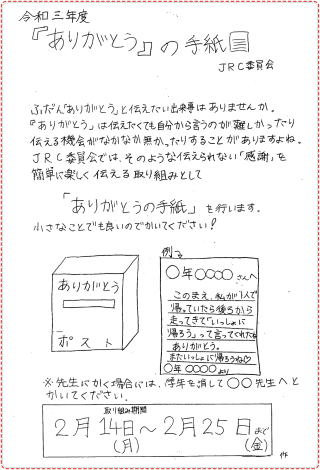 令和三年度
『ありがとう』の手紙
JRC委員会
ふだん「ありがとう」と伝えたい出来事はありませんか。
『ありがとう』は伝えたくても自分から言うのが難しかったり
伝える機会がなかなか無かったりすることがありますよね。
JRC委員会では、そのような伝えられない「感謝」を
簡単に楽しく伝える取り組みとして
「ありがとうの手紙」を行います。
小さなことでも良いのでかいてください!
ありがとう
ポスト
例え
○年○○○○さんへ
このまえ、私が1人で
帰っていたら後ろから
走ってきて「いっしょに
帰ろう」って言ってくれたね
ありがとう。
またいっしょに帰ろうね♡
○年○○○○より
※先生にかく場合には、学年を消して○○先生へと
かいてください。
取り組み期間
2月14日～2月25日まで
(月)
(金)